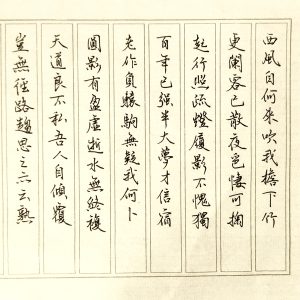 西風自何來吹我檐下竹
更闌客已散夜色悽可掬
起行照疏燈履影不愧獨
百年已強半大夢才信宿
老作負轅駒無疑我何卜
圓影有盈虛逝水無終複
天道良不私吾人自傾覆
豈無徑路趨思之亦云熟